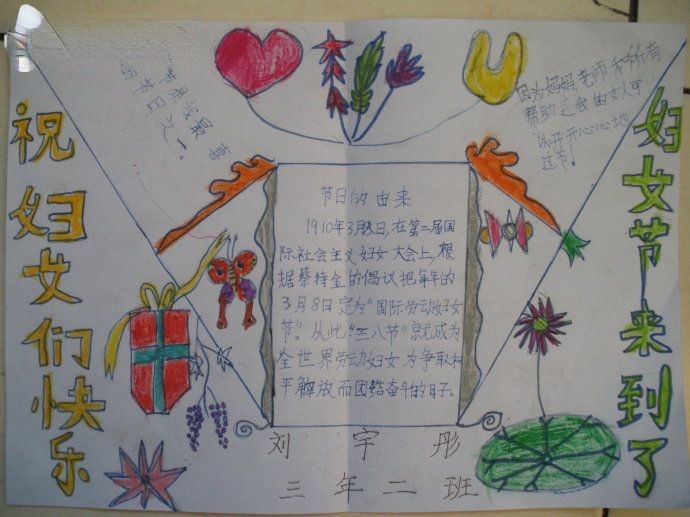 祝妇女们快乐
一节是我最喜
的节日之一。
因为妈妈老师和所有
帮助过我的女人可
以开开心心地
过节。
妇女节来到了
节日的由来
1910年3月8日，在第二届国
际社会主义妇女大会上，根
据蔡特金的倡议把每年的
3月8日定为“国际劳动妇女
节”。从此“三八节”就成为
全世界劳动妇女为争取和
平解放而团结奋斗的日子。
刘宇彤
三年二班